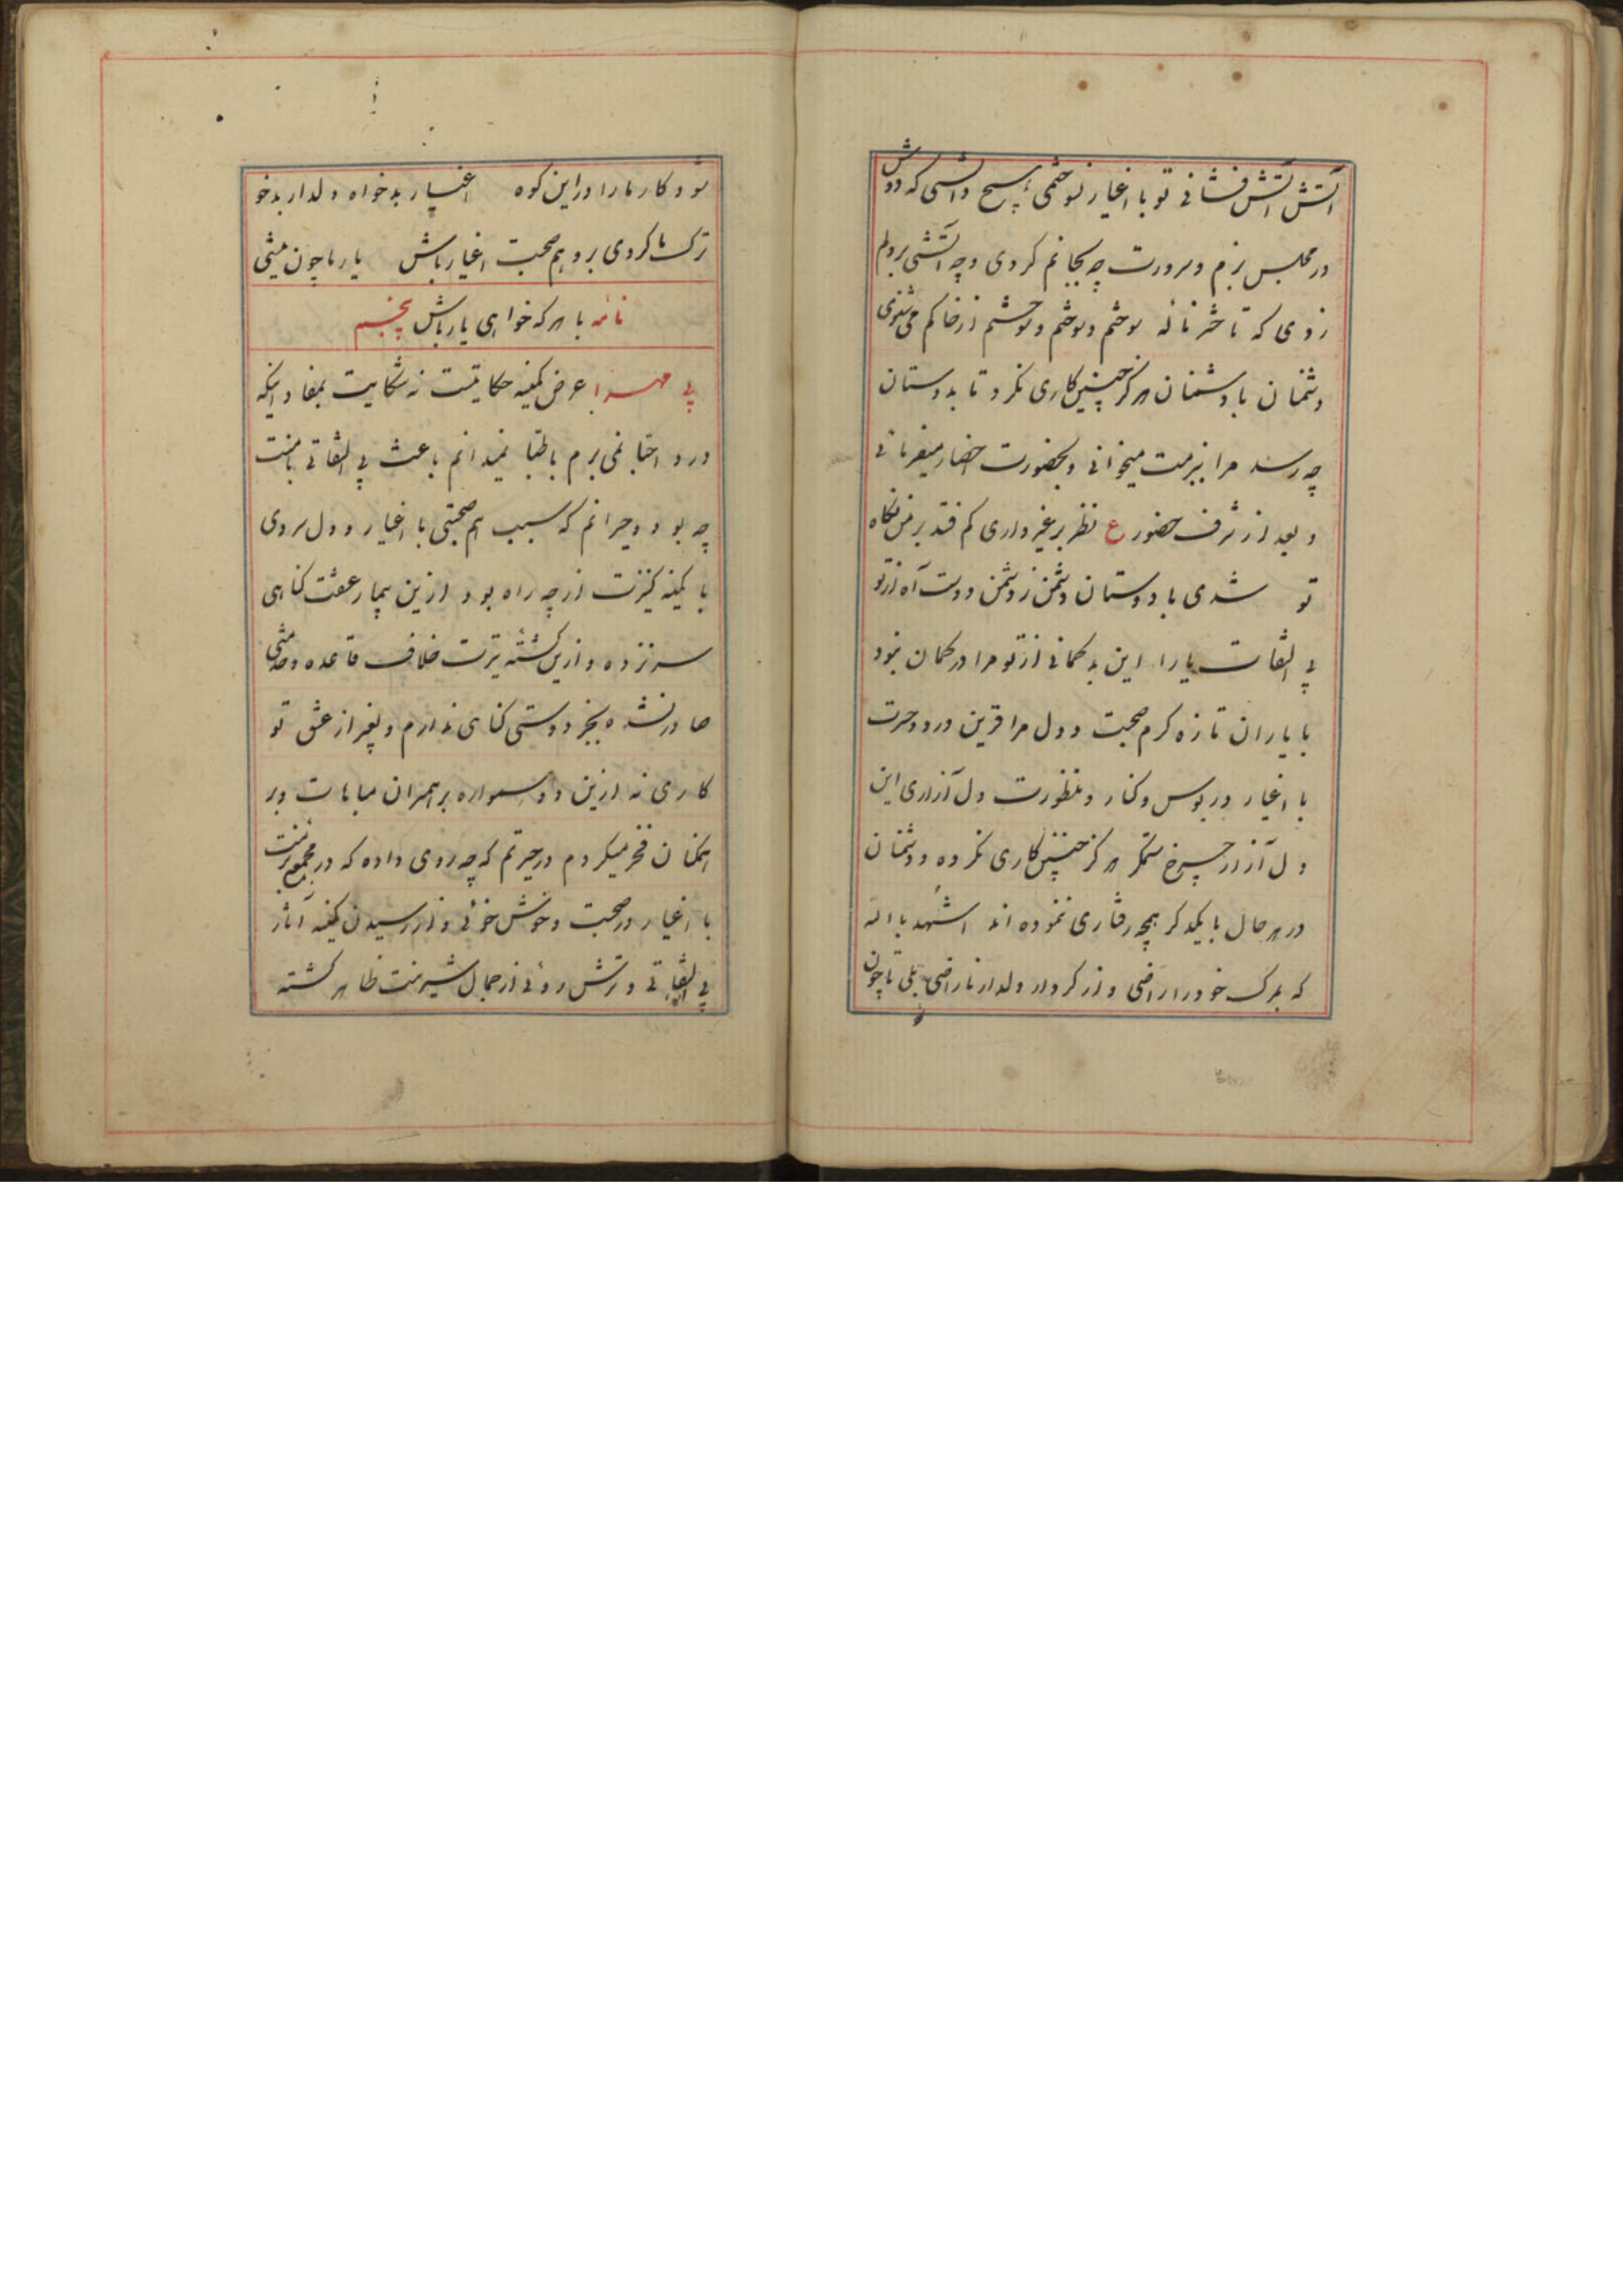 آتش آتش فشانی تو با اغیار سوختمی هیچ دانسی که دوش
در مجلس بزم و سرورت چه بجانم کردی و چه آتشی بردلم
زدی که تا حشر ناله سوختم و سوختم و سوختم از خاکم می شنوی
دشمنان با دشمنان هرگز چنین کاری نکرد تا بدوستان
چه رسد مرا ببزمت میخوانی و بحضورت احضار میفرمائی
و بعد از شرف حضور ع نظر بر غیر داری کم فتد بر من نگاه
تو شدی با دوستان دشمن ز دشمن دوست آه از تو
بی التفات یارا این بد گمانی از تو مرا در گمان نبود
با یاران تازه گرم صحبت و دل مرا قرین درد و حسرت
با اغیار در بوس و کنار و منظورت دل آزاری این
دل آزار چرخ ستمگر هرگز چنین کاری نکرده و دشمنان
در هر حال با یکدگر همچه رفتاری ننموده اند اشهد بالله
که بمرگ خود راراضی و از کردار دلدار ناراضی بلی تا چون
شود کار ما را در این کوه اغیار بدخواه و دلدار بدخو
ترک ما کردی برو هم صحبت اغیار باش یار ما چون نیستی
نامه با هر که خواهی یار باش پنجم
بی مهرا عرض کمینه حکایتست نه شکایت بمفاد اینکه
درد احبا نمی برم باطبا نمیدانم باعث بی التفاتی بامنت
چه بود و حیرانم که سبب هم صحبتی با اغیار و دل سردی
با کمینه کنیزت از چه راه بود ازین بیمار عشقت گناهی
سر نزده و ازین کشته تیرت خلاف قاعده و
صادر نشده بجز دوستی گناهی ندارم و بغیر از عشق تو
کاری نه ازین دو همواره بر همسران مباهات و بر
همگنان فخر میکردم در حیرتم که چه روی داده که در مجمع بزمت
با اغیار در صحبت و خوش خوئی و از رسیدن کمینه آثار
بی التفاتی و ترش روئی از جمال شیرینت ظاهر گشته